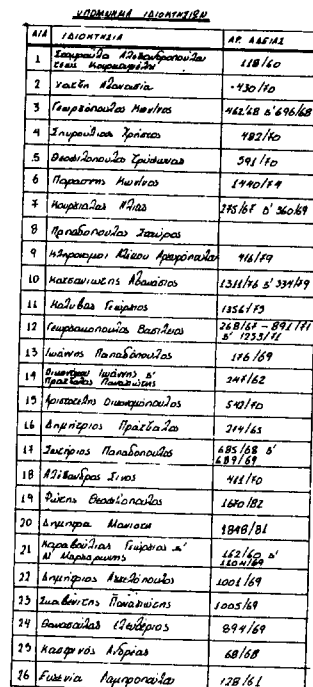 ΥΠΟΜΝΗΜΑ ΙΔΙΟΚΤΗΣΙΩΝ
Α/Α ΙΔΙΟΚΤΗΣΙΑ ΑΡ. ΑΔΕΙΑΣ
1 Σταυρούλα Αλεξανδροπούλου 118/60
2 Αθανασία 430/70
3 Γεωργόπουλος Κων/νος 462/68 & 696/68
4 Σπυρούλιας Χρήστος 482/70
5 Θεοφιλόπουλος Τρύφωνας 591/70
6 Παρασύρης Κων/νος 1440/79
7 Κουρκιαλας Ηλίας 275/67 & 360/69
8 Παπαδόπουλος Σταύρος
9 Κληρονόμοι 416/79
10 Κατσανιώτης Αθανάσιος 1311/76 & 334/79
11 Καλύβας Γεώργιος 1356/79
12 Γεωργακόπουλος Βασίλειος 268/67 - 891/71
& 1253/71
13 Ιωάννης Παπαδόπουλος 176/69
14 Οικονόμου Ιωάννης &
Πράτζαλος Παναγιώτης 247/62
15 Αριστοτέλης Οικονομόπουλος 542/70
16 Δημήτριος Πράτζαλος 214/65
17 Σωτήριος Παπαδόπουλος 685/68 &
689/69
18 Αλέξανδρος Σίνος 411/70
19 Φώτης Θεοφιλόπουλος 1670/82
20 Δήμητρα 1848/81
21 Καραβούλιας Γεώργιος &
162/60 &
1104/69
22 Δημήτριος Αγγελόπουλος 1001/69
23 Παναγιώτης 1005/69
24 Ελευθέριος 894/69
25 Ανδρέας 68/68
26 Ευγενία Λαμπροπούλου 128/61